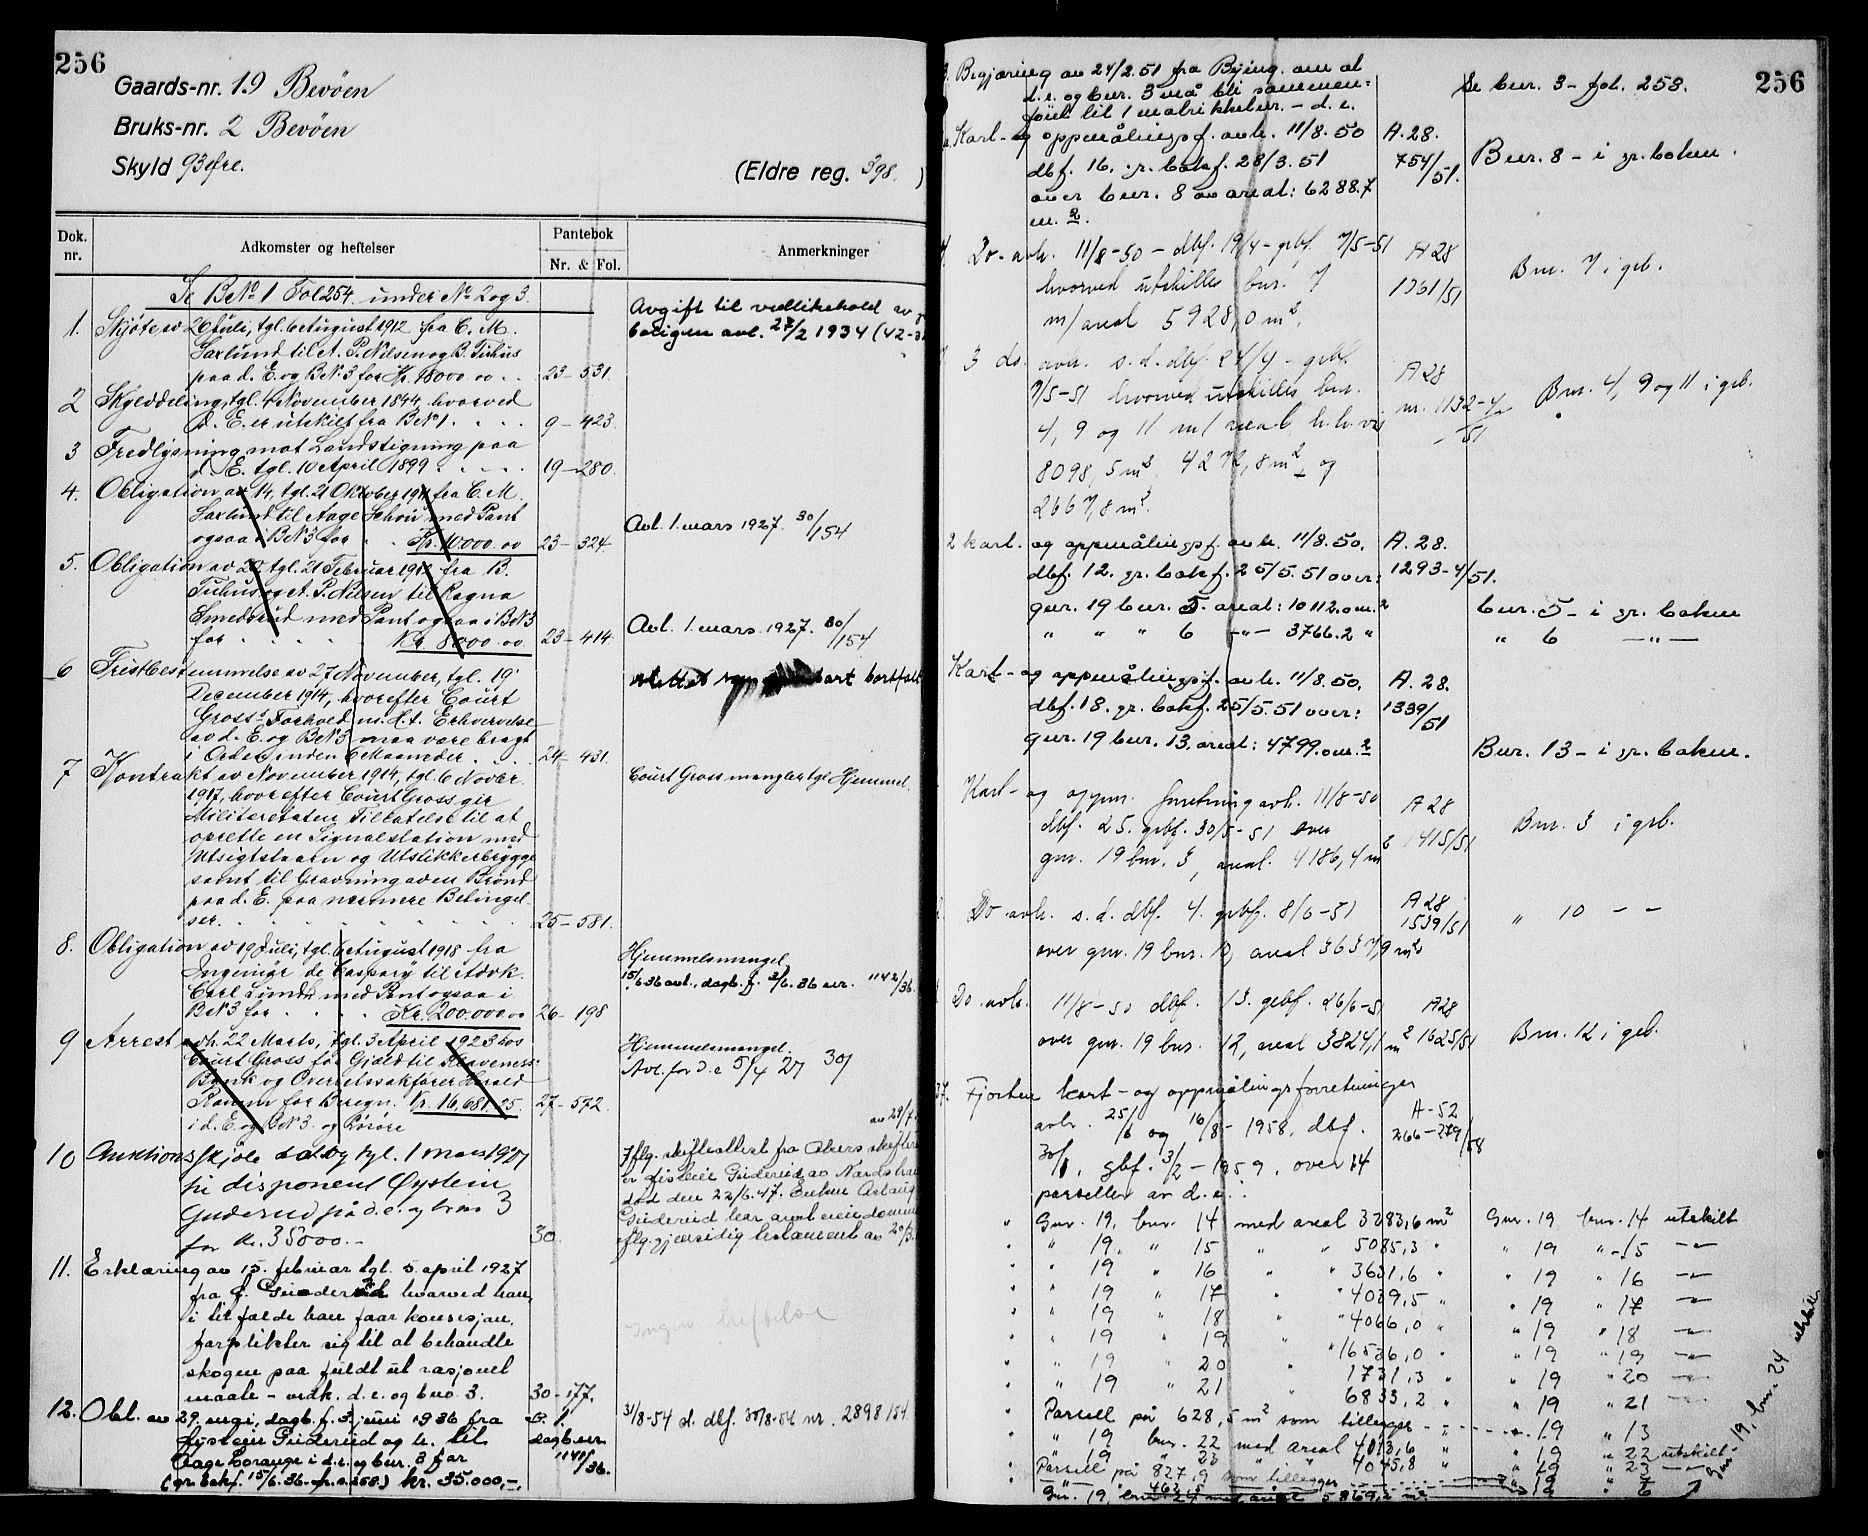 256
Gaards-nr. 19 Bevöen
Bruks-nr. 2 Bevöen
Skyld 93 øre.
(Eldre reg. 398. )
Dok. nr.
Adkomster og heftelser
Pantebok
Nr. & Fol.
Anmerkninger
Se BNº 1 Fol 254 under Nº 2 og 3.
1. Skjöte av 26 Juli, tgl. 6 August 1912 fra C. M.
Saxlund til A. P. Nilsen og B. Tuhus
paa d. E. og BN. 3 for Kr. 18000.00 23-531.
2 Skylddeling, tgl. 4 November 1844 hvorved
d. E. er utskilt fra BN 1. 9-423.
3 Fredlysning mot Landstigning paa
d. E. tgl. 10 April 1899. 19-280.
4. Obligation av 14, tgl. 21 Oktober 1911 fra C. M.
Saxlund til Aage Schou med Pant
ogsaa i BN 3 for Kr. 10000.00 23-324
5. Obligation av 20, tgl. 21 Februar 1912 fra B.
Tuhus og A. P. Nilsen til Ragna
Smedsrud med Pant ogsaa i BN 3
for Kr. 8000.00 23-414.
6 Fristbestemmelse av 27 November, tgl. 19
December 1914, hvorefter Court
Gross's Forhold m. H. t. Erhvervelse
av d. E. og BN 3 maa være bragt
i Orden inden 6 Maaneder. 24-431.
7 Kontrakt av November 1914, tgl. 6 Novbr.
1917, hvorefter Court Gross gir
Militæretaten Tilladelse til at
oprette en Signalstation med
Utsigtstaarn og Utstikkerbrygge
samt til Gravning av en Brönd
paa d. E. paa nærmere Betingel-
ser. 25-581.
8. Obligation av 19 Juli, tgl. 6 August 1918 fra
Ingeniör de Caspary til Advk.
Carl Lundh med Pant ogsaa i
BN 3 for Kr. 200.000.00 26-198
9 Arrest avh. 22 Marts, tgl. 3 April 1923 hos
Court Gross for Gjæld til Klaveness
Bank og Overretssakförer Harald
Ramm for Beregn. Kr. 16,681.25. 27-572.
i d. E. og BN 3. og Rörøre
10 Auktionsskjöte dat. og tgl. 1 mars 1927
til disponent Øystein
Guderud på d. e. og bno 3
for kr. 35000.- 30
11. Erklæring av 15. februar tgl. 5. april 1927
fra Ø. Guderud hvorved han,
i tilfælde han faar konsesjon,
forplikter sig til at behandle
skogen paa fuldt ut rasjonel
maate - vedk. d. e. og bno. 3. 30-177.
12. Obl. av 29. mai, dagb. f. 3. juni 1936 fra
Øystein Guderud og h. til
Aage Lorange i d. e. og bnr. 3 for
(gr. bokf. 15/6.36. fr. a. 258) kr. 35.000,-.
dagb.nr. 1141/36.
Avgift til vedlikehold av
boligen avl. 27/2 1934 (42-3
Avl. 1. mars 1927. 30/154
Avl. 1. mars 1927. 30/154
slettet som bort fallt
Court Gross mangler tgl Hjemmel.
Hjemmelsmangel
15/6 36 avl., dagb. f. 3/6.36 nr. 1142/36.
Hjemmelsmangel
Avl. for d. e 5/4 27 30/
av 29/7
Iflg. skifteattest fra Akers skifter
er Øistein Guderud av Nordstrand
död den 22/6.47. Enken Aslaug
Guderud har arvet eiendommen
iflg. gjensidig testament av 20/3.
Ingen heftelse
31/8-54 d. dbf. 30/8-54 nr. 2898/54.
256
Begjæring av 24/2.51 fra Bying. om at
d. e. og bnr. 3 må bli sammen=
föiet til 1 matrikkelnr. - d. e.
Se bnr. 3 - fol. 258.
Kart- og oppmålingsf. avh. 11/8.50 A. 28.
dbf. 16. gr. bokf. 28/3.51 754/51.
over bnr. 8 av areal: 6288.7
m. 2.
Bnr. 8 - i gr. boken.
Do - avh. 11/8-50 - dbf. 19/4 - grbf. 7/5-51 A 28
hvorved utskilles bnr. 7 1061/51
m/areal 5928,0 m².
Bnr. 7 i grb.
3 do. avh. s. d. dbf. 24/4 - grbf. A 28
7/5-51 hvorved utskilles bnr. nr. 1132-4/51
4, 9 og 11 m/areal h.h.vis
8098,5 m², 4272,8 m² og
2667,8 m².
Bnr. 4, 9 og 11 i grb.
2 kart. og oppmålingsf. avh. 11/8.50. A. 28.
dbf. 12. gr. bokf. 25/5.51 over: 1293-4/51.
gnr. 19 bnr. 5. areal: 10112.0 m.2 bnr. 5 - i gr. boken
" " " 6 -"- 3766.2 " " 6 -"-
Kart- og oppmålingsf. avh. 11/8.50. A. 28.
dbf. 18. gr. bokf. 25/5.51 over: 1339/51
gnr. 19 bnr. 13. areal: 4799.0 m. 2
Bnr. 13 - i gr. boken.
Kart- og oppm. forretning avh. 11/8-50 A 28
dbf. 25. grbf. 30/5-51 over 1415/51
gnr. 19 bnr. 3, areal. 4186,4 m²
Bnr. 3 i grb.
Do avh. s. d. dbf. 4. grbf. 8/6-51 A 28
over gnr. 19 bnr. 10, areal 3637,9 m² 1539/51
" 10 - -
Do. avh. 11/8-50 dbf. 13. grbf. 26/6-51 A28
over gnr. 19 bnr. 12, areal 3824,1 m² 1625/51
Bnr. 12 i grb.
37. Fjorten kart- og oppmålingsforretninger
avh. 25/6 og 16/8 - 1958, dbf. A-52
30/1, gbf. 3/2 - 1959, over 14 266-279/58
parseller av d. e.:
" Gnr. 19, bnr. 14 med areal 3283,6 m² Gnr. 19 bnr. 14 utskilt
" " 19, " 15 " " 5085,3 " " 19 " 15 -"-
" " 19 " 16 " " 3631,6 " " 19 " 16 -"-
" " 19 " 17 " " 4039,5 " " 19 " 17 -"-
" " 19 " 18 " " 4066,0 " " 19 " 18 -"-
" " 19 " 19 " " 16536,0 " " 19 " 19 -"-
" " 19 " 20 " " 1731,3 " " 19 " 20 -"-
" " 19 " 21 " " 6833,2 " " 19 " 21 -"-
" Parsell på 628,5 m² som tillegges " 19 " 13
" " 19 bnr. 22 med areal 4013,6 " " 19 " 22 utskilt
" " 19 " 23 " " 4045,8 " " 19 " 23 -"-
" Parsell på 827,9 som tillegges " 19 " 7
" 19 " 6
Gnr. 19, bnr. 24 med areal 5869,2 m²
Gnr. 19, bnr. 24 utskilt